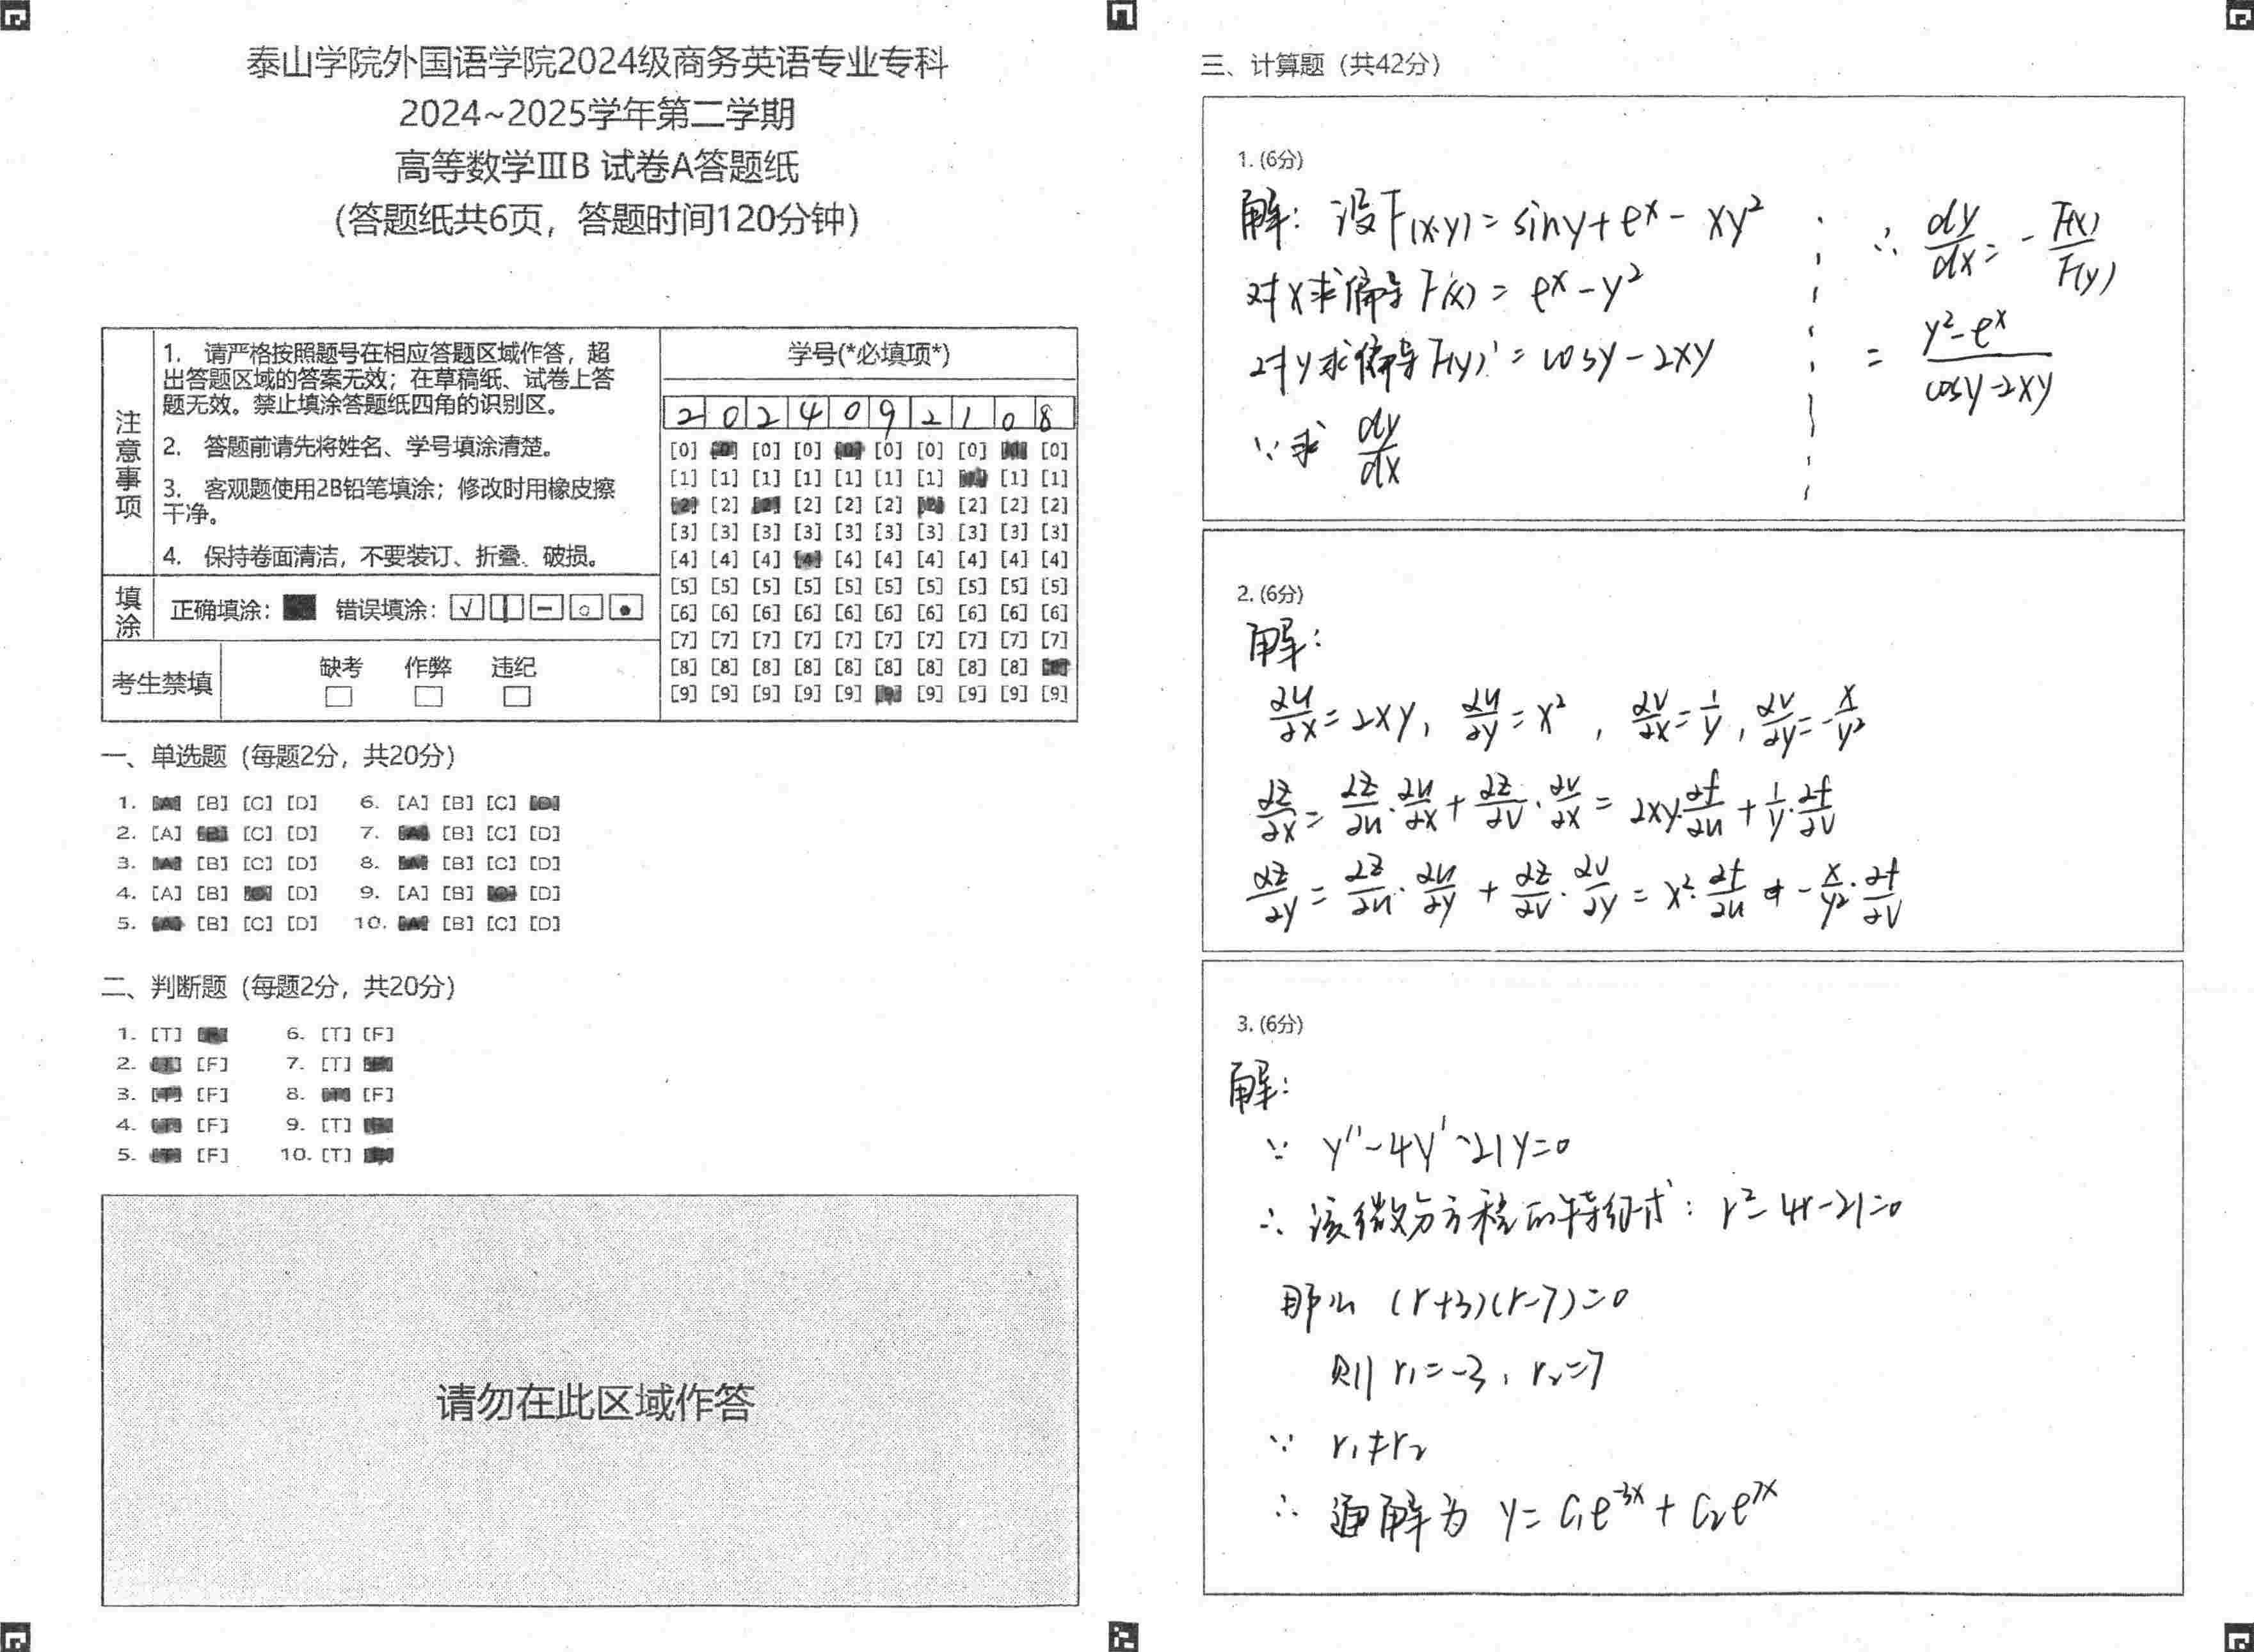 泰山学院外国语学院2024级商务英语专业专科
2024~2025学年第二学期
高等数学ⅢB 试卷A答题纸
(答题纸共6页，答题时间120分钟)
注意事项
1. 请严格按照题号在相应答题区域作答，超
出答题区域的答案无效；在草稿纸、试卷上答
题无效。禁止填涂答题纸四角的识别区。
2. 答题前请先将姓名、学号填涂清楚。
3. 客观题使用2B铅笔填涂；修改时用橡皮擦
干净。
4. 保持卷面清洁，不要装订、折叠、破损。
填涂
正确填涂：■ 错误填涂：
考生禁填
缺考 作弊 违纪
学号(*必填项*)
2 0 2 4 0 9 2 1 0 8
[0] [0] [0] [0] [0] [0] [0] [0] [0] [0]
[1] [1] [1] [1] [1] [1] [1] [1] [1] [1]
[2] [2] [2] [2] [2] [2] [2] [2] [2] [2]
[3] [3] [3] [3] [3] [3] [3] [3] [3] [3]
[4] [4] [4] [4] [4] [4] [4] [4] [4] [4]
[5] [5] [5] [5] [5] [5] [5] [5] [5] [5]
[6] [6] [6] [6] [6] [6] [6] [6] [6] [6]
[7] [7] [7] [7] [7] [7] [7] [7] [7] [7]
[8] [8] [8] [8] [8] [8] [8] [8] [8] [8]
[9] [9] [9] [9] [9] [9] [9] [9] [9] [9]
一、单选题 (每题2分，共20分)
1. [A] [B] [C] [D] 6. [A] [B] [C] [D]
2. [A] [B] [C] [D] 7. [A] [B] [C] [D]
3. [A] [B] [C] [D] 8. [A] [B] [C] [D]
4. [A] [B] [C] [D] 9. [A] [B] [C] [D]
5. [A] [B] [C] [D] 10. [A] [B] [C] [D]
二、判断题 (每题2分，共20分)
1. [T] [F] 6. [T] [F]
2. [T] [F] 7. [T] [F]
3. [T] [F] 8. [T] [F]
4. [T] [F] 9. [T] [F]
5. [T] [F] 10. [T] [F]
请勿在此区域作答
三、计算题 (共42分)
1. (6分)
解：设F(x,y) = siny + e^x - xy²
对x求偏导 F'(x) = e^x - y²
对y求偏导 F(y)' = cosy - 2xy
∵ 求 dy/dx
∴ dy/dx = - F(x)/F(y)
= (y² - e^x)/(cosy - 2xy)
2. (6分)
解：
∂u/∂x = 2xy, ∂u/∂y = x², ∂v/∂x = 1/y, ∂v/∂y = -x/y²
∂z/∂x = ∂z/∂u · ∂u/∂x + ∂z/∂v · ∂v/∂x = 2xy · ∂f/∂u + 1/y · ∂f/∂v
∂z/∂y = ∂z/∂u · ∂u/∂y + ∂z/∂v · ∂v/∂y = x² · ∂f/∂u - x/y² · ∂f/∂v
3. (6分)
解：
∵ y'' - 4y' - 21y = 0
∴ 该微分方程的特征式：r² - 4r - 21 = 0
那么 (r+3)(r-7) = 0
则 r₁ = -3, r₂ = 7
∵ r₁ ≠ r₂
∴ 通解为 y = C₁e^-3x + C₂e^7x